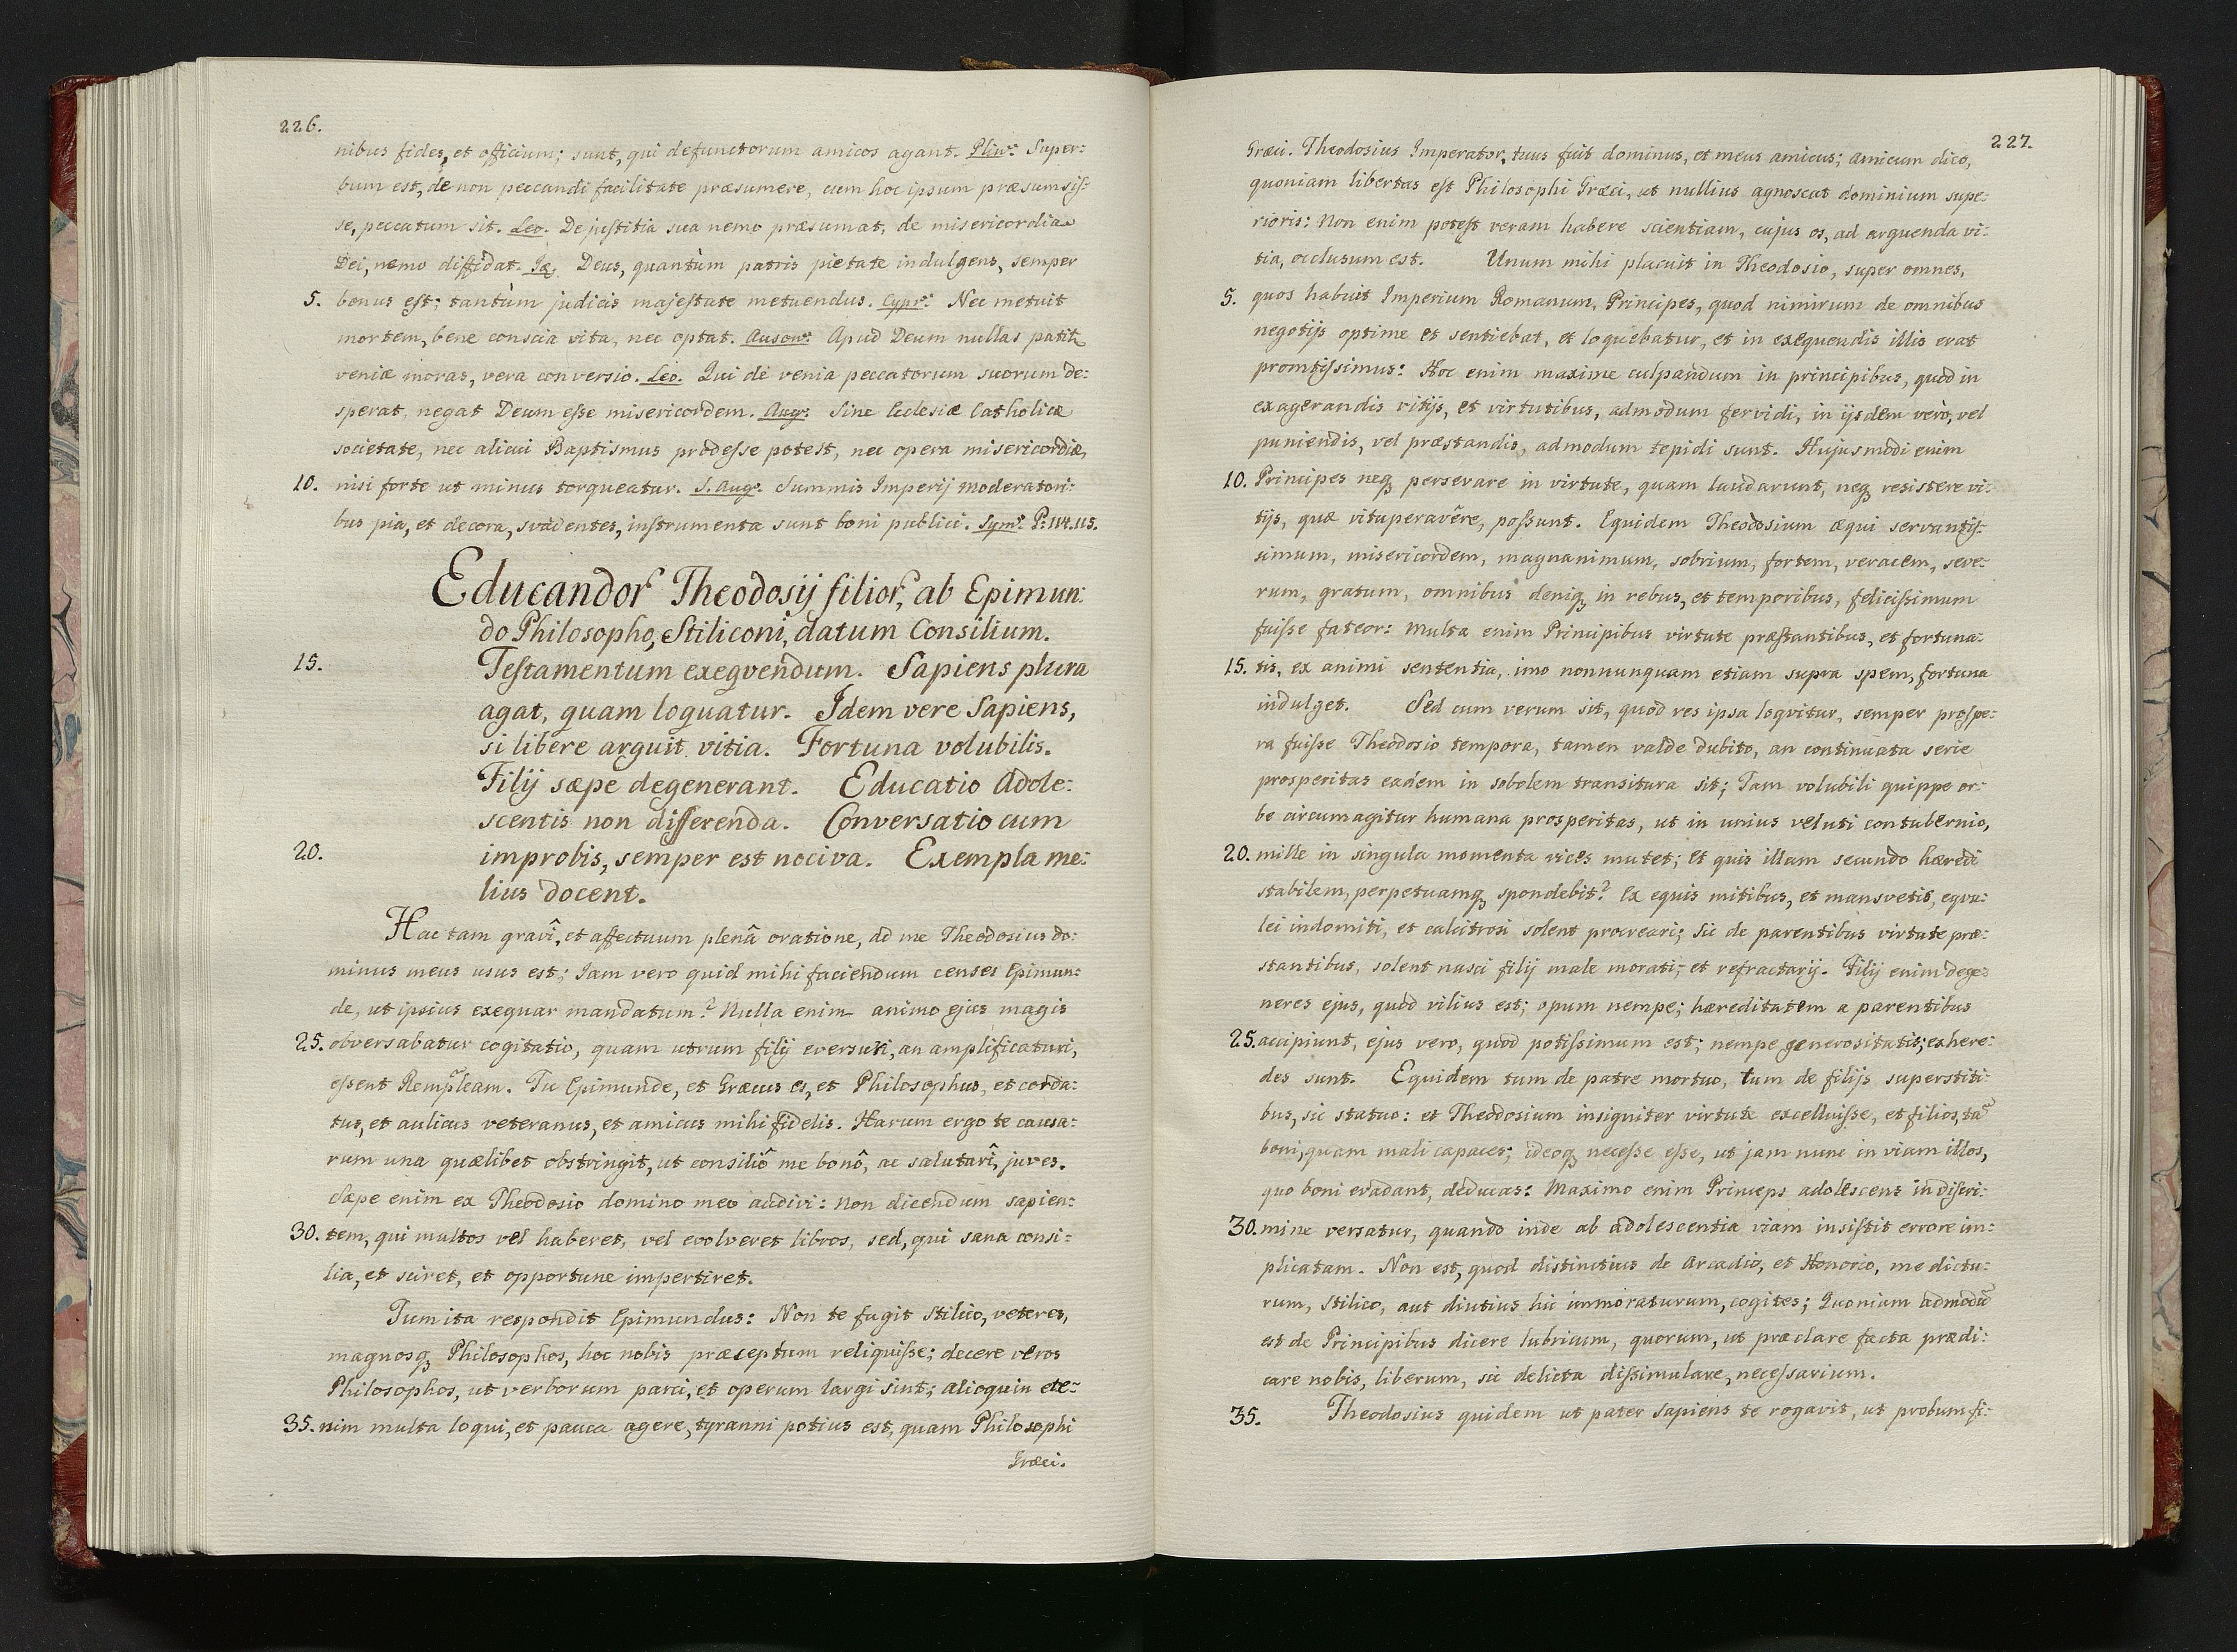 226.
nibus fides, et officium; sunt, qui defunctorum amicos agant. Plin: Super:
bum est, de non peccandi facilitate præsumere, cum hoc ipsum præsumsis:
se, peccatum sit. Leo. De justitia sua nemo præsumat, de misericordia
Dei, nemo diffidat. Id. Deus, quantùm patris pietate indulgens, semper
5. bonus est; tantùm judicis majestate metuendus. Cypr: Nec metuit
mortem, bene conscia vita, nec optat. Auson: Apud Deum nullas patitr
veniæ moras, vera conversio. Leo. Qui de venia peccatorum suorum de:
sperat, negat Deum esse misericordem. Aug: Sine Ecclesiæ Catholicæ
societate, nec alicui Baptismus prodesse potest, nec opera misericordiæ,
10. nisi forte ut minus torqueatur. S. Aug: Summis Imperij moderatori:
bus pia, et decora, svadentes, instrumenta sunt boni publici. Sym: P: 114. 115.
Educandor Theodosij filior, ab Epimun:
do Philosopho, Stiliconi, datum Consilium.
15. Testamentum exeqvendum. Sapiens plura
agat, quam loquatur. Idem vere Sapiens,
si libere arguit vitia. Fortuna volubilis.
Filij sæpe degenerant. Educatio Adole:
scentis non differenda. Conversatio cum
20. improbis, semper est nociva. Exempla me:
lius docent.
Hac tam gravî, et affectuum plenâ oratione, ad me Theodosius do:
minus meus usus est; Jam vero quid mihi faciendum censes Epimun:
de, ut ipsius exequar mandatum? Nulla enim animo ejus magis
25. obversabatur cogitatio, quam utrum filij eversuri, an amplificaturi,
essent Rempleam. Tu Epimunde, et Græcus es, et Philosophus, et corda:
tus, et aulicus veteranus, et amicus mihi fidelis. Harum ergo te causa:
rum una quælibet obstringit, ut consiliô me bonô, ac salutarî, juves.
Sæpe enim ex Theodosio domino meo audivi: non dicendum sapien:
30. tem, qui multos vel haberet, vel evolveret libros, sed, qui sana consi:
lia, et sciret, et opportune impertiret.
Tum ita respondit Epimundus: Non te fugit Stilico, veteres,
magnosq Philosophos, hoc nobis præceptum reliquisse; decere veros
Philosophos, ut verborum parci, et operum largi sint; alioquin ete:
35. nim multa loqui, et pauca agere, tyranni potius est, quam Philosophi
Græci.
227.
Græci. Theodosius Imperator, tuus fuit dominus, et meus amicus; amicum dico,
quoniam libertas est Philosophi Græci, ut nullius agnoscat dominium supe:
rioris: Non enim potest veram habere scientiam, cujus os, ad arguenda vi:
tia, occlusum est. Unum mihi placuit in Theodosio, super omnes,
5. quos habuit Imperium Romanum, Principes, quod nimirum de omnibus
negotijs optime et sentiebat, et loquebatur, et in exequendis illis erat
promtissimus: Hoc enim maxime culpandum in principibus, quod in
exagerandis vitijs, et virtutibus, admodum fervidi, in ijsdem verò, vel
puniendis, vel præstandis, admodum tepidi sunt. Hujusmodi enim
10. Principes neq perseverare in virtute, quam laudarunt, neq resistere vi:
tijs, quæ vituperavêre, possunt. Equidem Theodosium æqui servantis:
simum, misericordem, magnanimum, sobrium, fortem, veracem, seve:
rum, gratum, omnibus deniq in rebus, et temporibus, felicissimum
fuisse fateor: Multa enim Principibus virtute præstantibus, et fortuna:
15. tis, ex animi sententia, imo nonnunquam etiam supra spem, fortuna
indulget. Sed cum verum sit, quod res ipsa loqvitur, semper prospe:
ra fuisse Theodosio tempora, tamen valde dubito, an continuata serie
prosperitas eadem in sobolem transitura sit; Tam volubili quippe or:
be circumagitur humana prosperitas, ut in unius veluti contubernio,
20. mille in singula momenta vices mutet; Et quis illam secundo hæredi
stabilem, perpetuamq spondebit? Ex equis mitibus, et mansvetis, eqvu:
lei indomiti, et calcitrosi solent procreari; sic de parentibus virtute præ:
stantibus, solent nasci filij male morati, et refractarij. Filij enim dege:
neres ejus, quod vilius est; opum nempe; hæreditatem a parentibus
25. accipiunt, ejus vero, quod potissimum est; nempe generositatis; exhere:
des sunt. Equidem tum de patre mortuo, tum de filijs superstiti:
bus, sic statuo: et Theodosium insigniter virtute excelluisse, et filios, tã
boni, quam mali capaces; ideoq necesse esse, ut jam nunc in viam illos,
quo boni evadant, deducas: Maximo enim Princeps adolescens in discri:
30. mine versatur, quando inde ab adolescentia viam insistit errore im:
plicatam. Non est, quod distinctius de Arcadio, et Honorio, me dictu:
rum, Stilico, aut diutius hic immoraturum, cogites; Quoniam admodũ
est de Principibus dicere lubricum, quorum, ut præclare facta prædi:
care nobis, liberum, sic delicta dissimulare, necessarium.
35. Theodosius quidem ut pater sapiens te rogavit, ut probum fi: